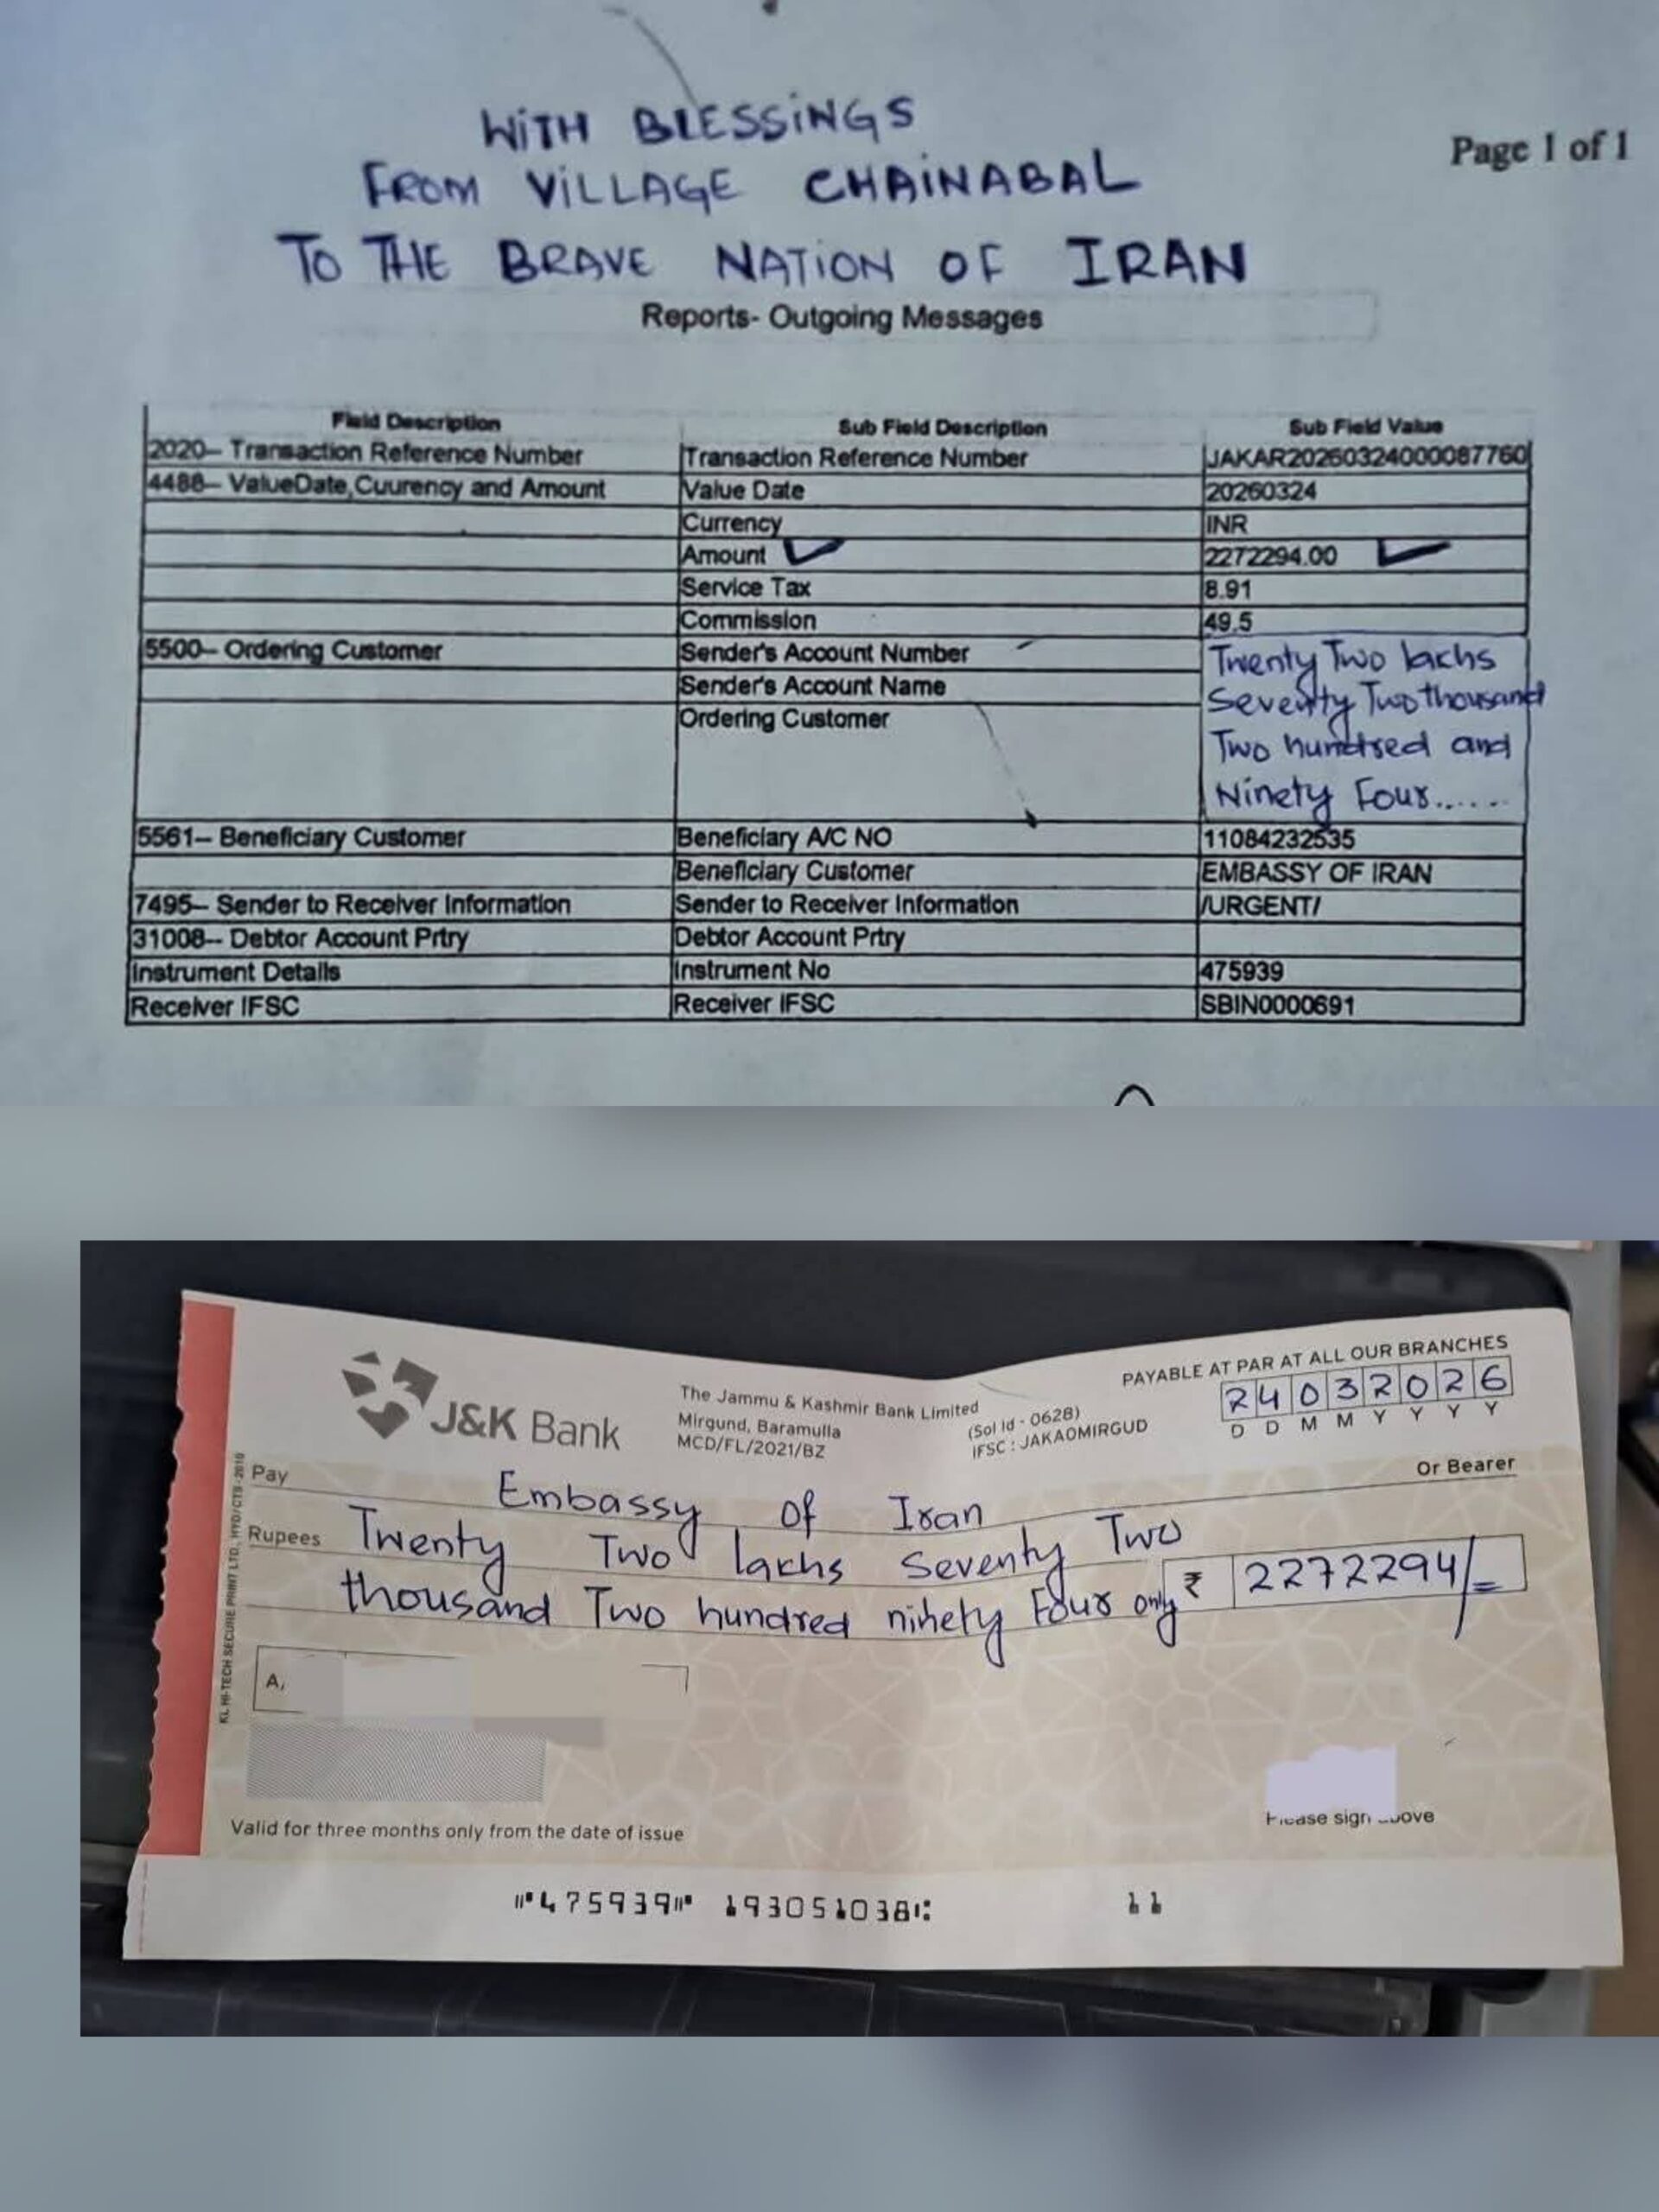 WITH BLESSINGS
FROM VILLAGE CHAINABAL
Page 1 of 1
TO THE BRAVE NATION OF IRAN
Reports- Outgoing Messages
Field Description Sub Field Description Sub Field Value
2020-- Transaction Reference Number Transaction Reference Number JAKAR20260324000087760
4488-- ValueDate,Cuurency and Amount Value Date 20260324
Currency INR
Amount 2272294.00
Service Tax 8.91
Commission 49.5
5500-- Ordering Customer Sender's Account Number Twenty Two lachs
Sender's Account Name Seventy Two thousand
Ordering Customer Two hundred and
Ninety Four......
5561-- Beneficiary Customer Beneficiary A/C NO 11084232535
Beneficiary Customer EMBASSY OF IRAN
7495-- Sender to Receiver Information Sender to Receiver Information /URGENT/
31008-- Debtor Account Prtry Debtor Account Prtry
Instrument Details Instrument No 475939
Receiver IFSC Receiver IFSC SBIN0000691
PAYABLE AT PAR AT ALL OUR BRANCHES
J&K Bank
The Jammu & Kashmir Bank Limited
Mirgund, Baramulla (Sol Id - 0628)
MCD/FL/2021/BZ IFSC : JAKA0MIRGUD
24032026
D D M M Y Y Y Y
Pay Embassy of Iran Or Bearer
Rupees Twenty Two lachs Seventy Two
thousand Two hundred ninety Four only ₹ 2272294/=
A/
KL HI-TECH SECURE PRINT LTD, HYD/CTS-2010
Please sign above
Valid for three months only from the date of issue
⑈475939⑈ 193051038⑆ 11